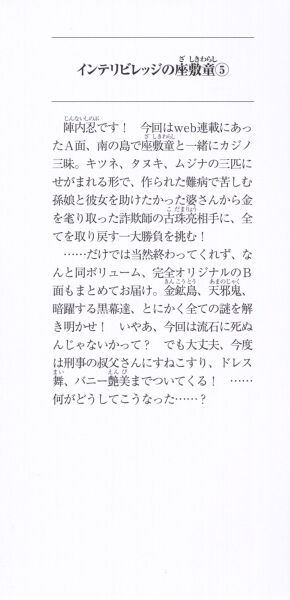 インテリビレッジの座敷童⑤
陣内忍です！　今回はweb連載にあっ
たA面、南の島で座敷童と一緒にカジノ
三昧。キツネ、タヌキ、ムジナの三匹に
せがまれる形で、作られた難病で苦しむ
孫娘と彼女を助けたかった婆さんから金
を毟り取った詐欺師の古珠亮相手に、全
てを取り戻す一大勝負を挑む！
……だけでは当然終わってくれず、な
んと同ボリューム、完全オリジナルのB
面もまとめてお届け。金鉱島、天邪鬼、
暗躍する黒幕達、とにかく全ての謎を解
き明かせ！　いやあ、今回は流石に死ぬ
んじゃないかって？　でも大丈夫、今度
は刑事の叔父さんにすねこすり、ドレス
舞、バニー艶美までついてくる！　……
何がどうしてこうなった……？